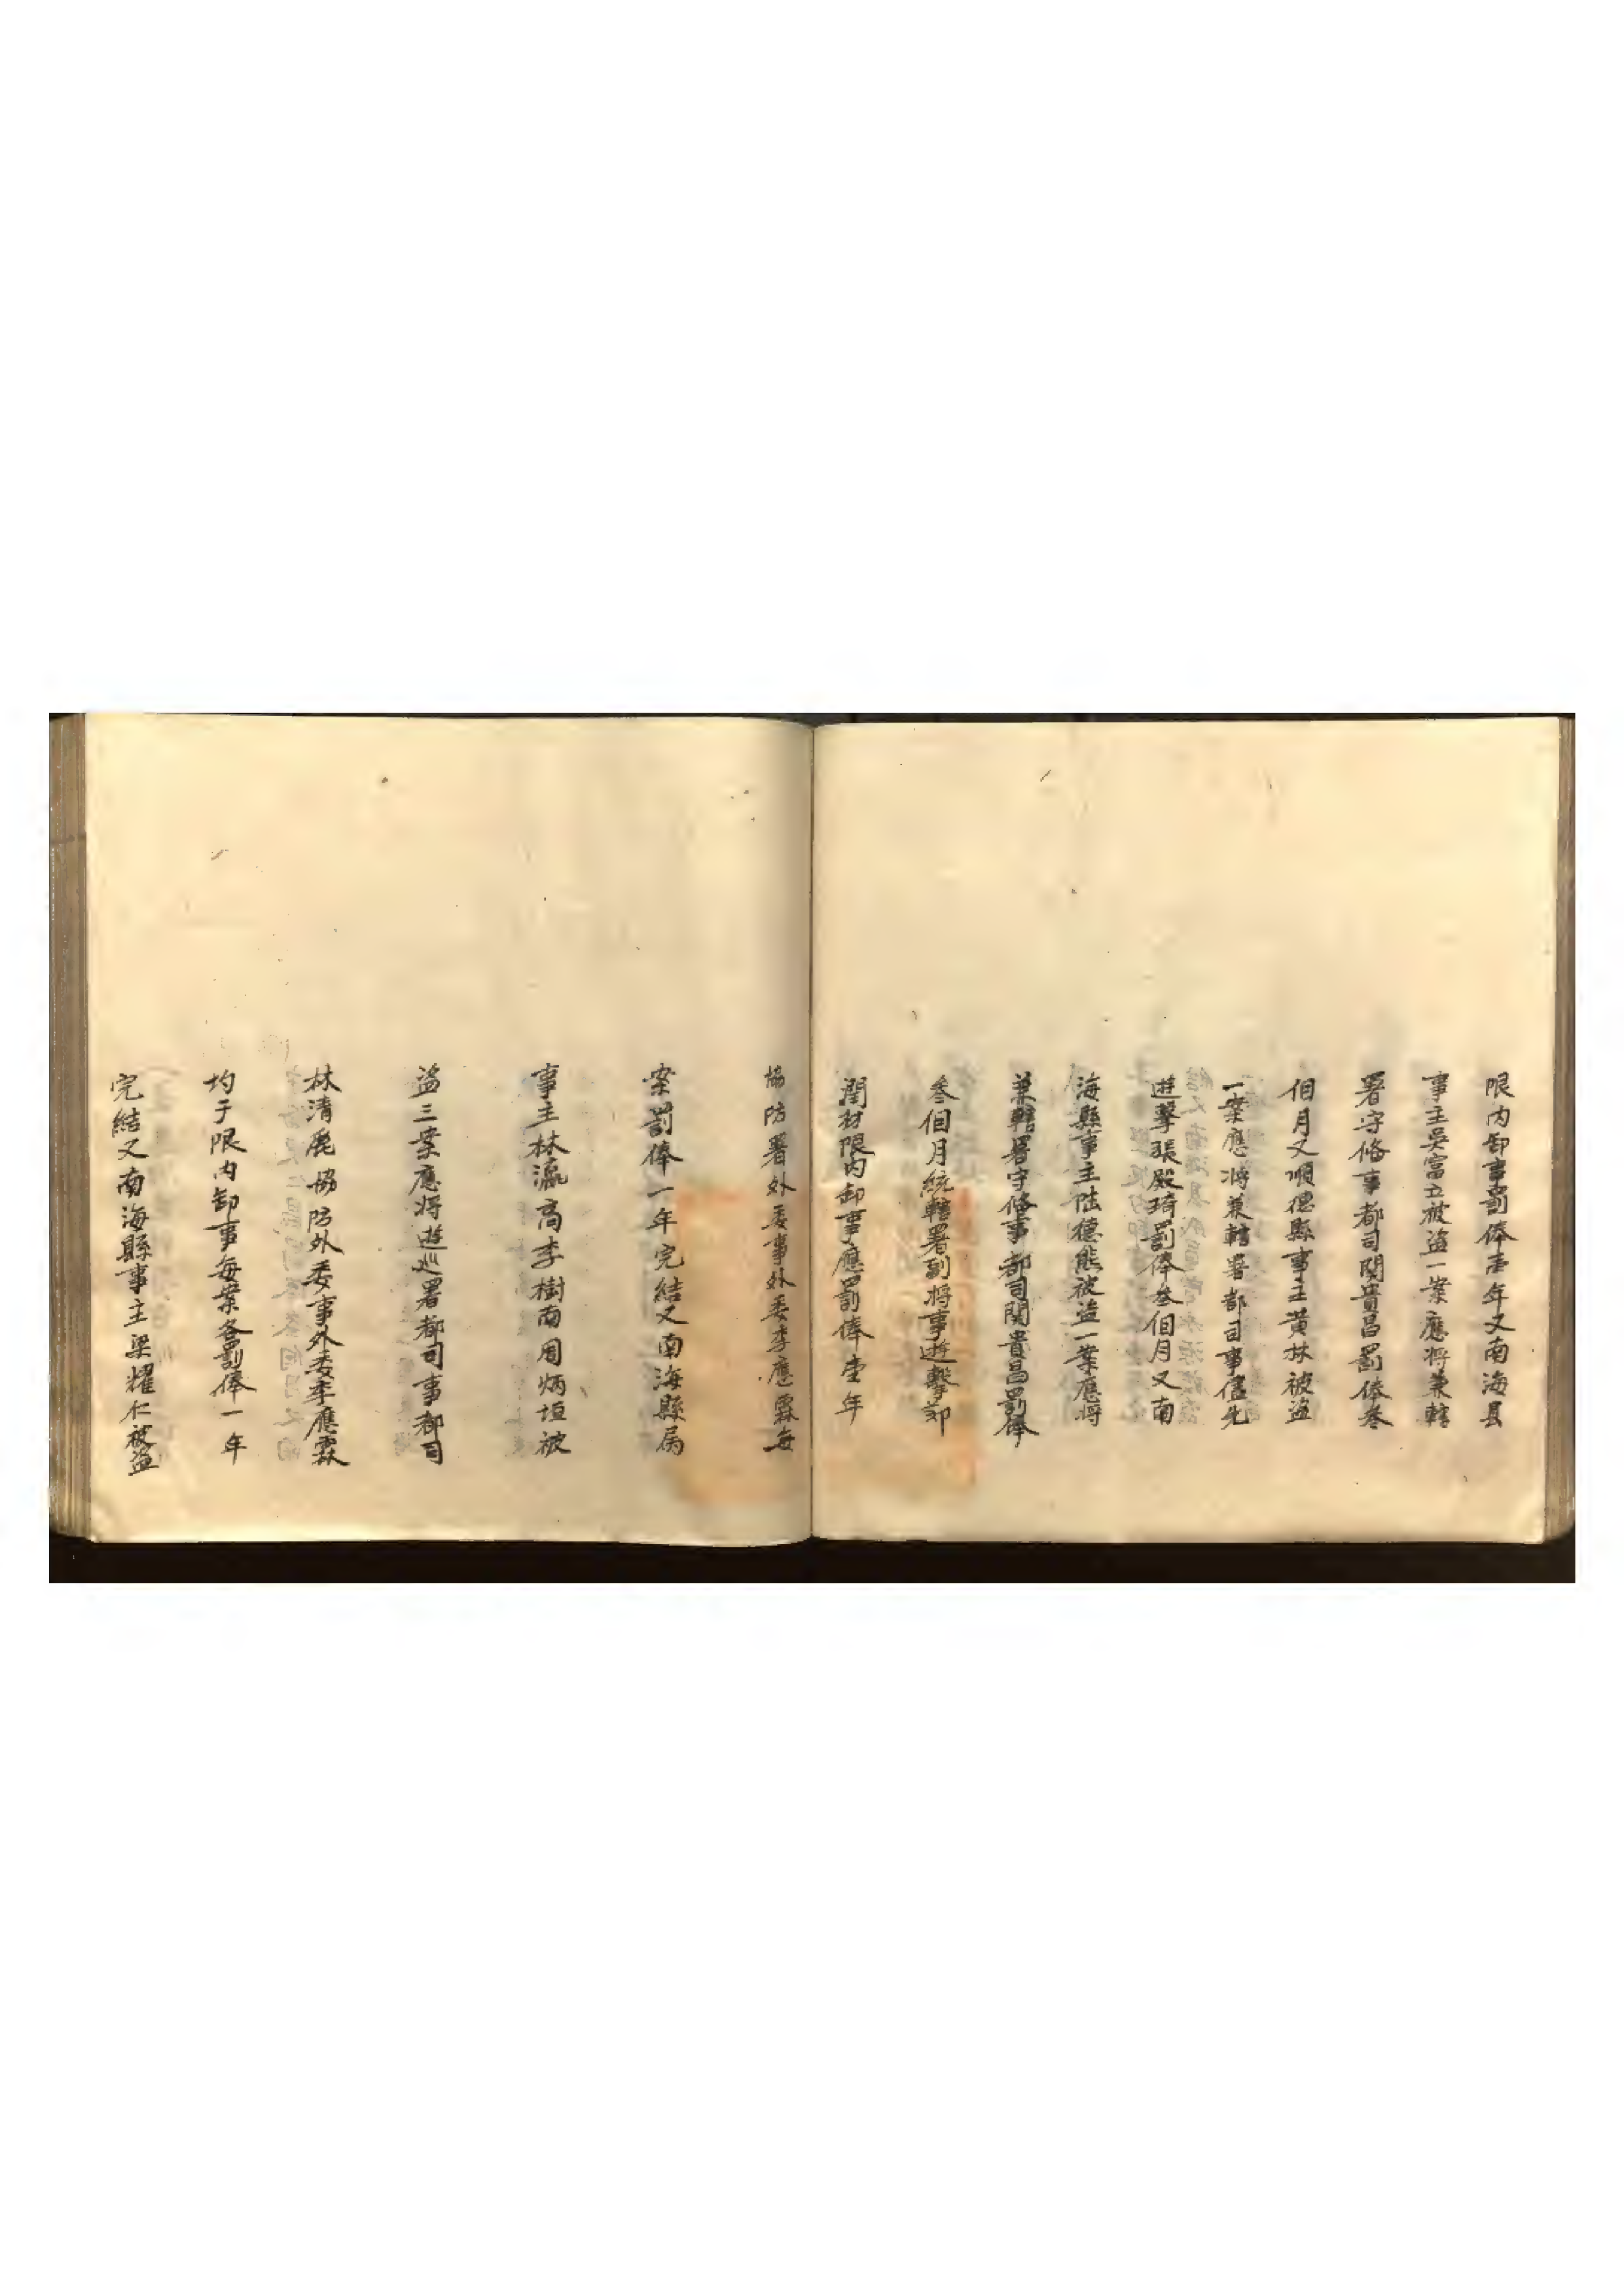 限内卸事罰俸壹年又南海县
事主吳富立被盗一案應将兼轄
署守俻事都司関貴昌罰俸叁
個月又順德縣事主黄林被盗
一案應将兼轄署都司事儘先
遊擊張殿琦罰俸叁個月又南
海縣事主陆德熊被盗一案應将
兼轄署守俻事都司関貴昌罰俸
叁個月統轄署副将事遊擊郑
潤材限内卸事應罰俸壹年
協防署外委事外委李應霖每
案罰俸一年完結又南海縣属
事主林瀛高李樹南周炳垣被
盗三案應将遊巡署都司事都司
林清麗協防外委事外委李應霖
均于限内卸事每案各罰俸一年
完結又南海縣事主梁耀仁被盗